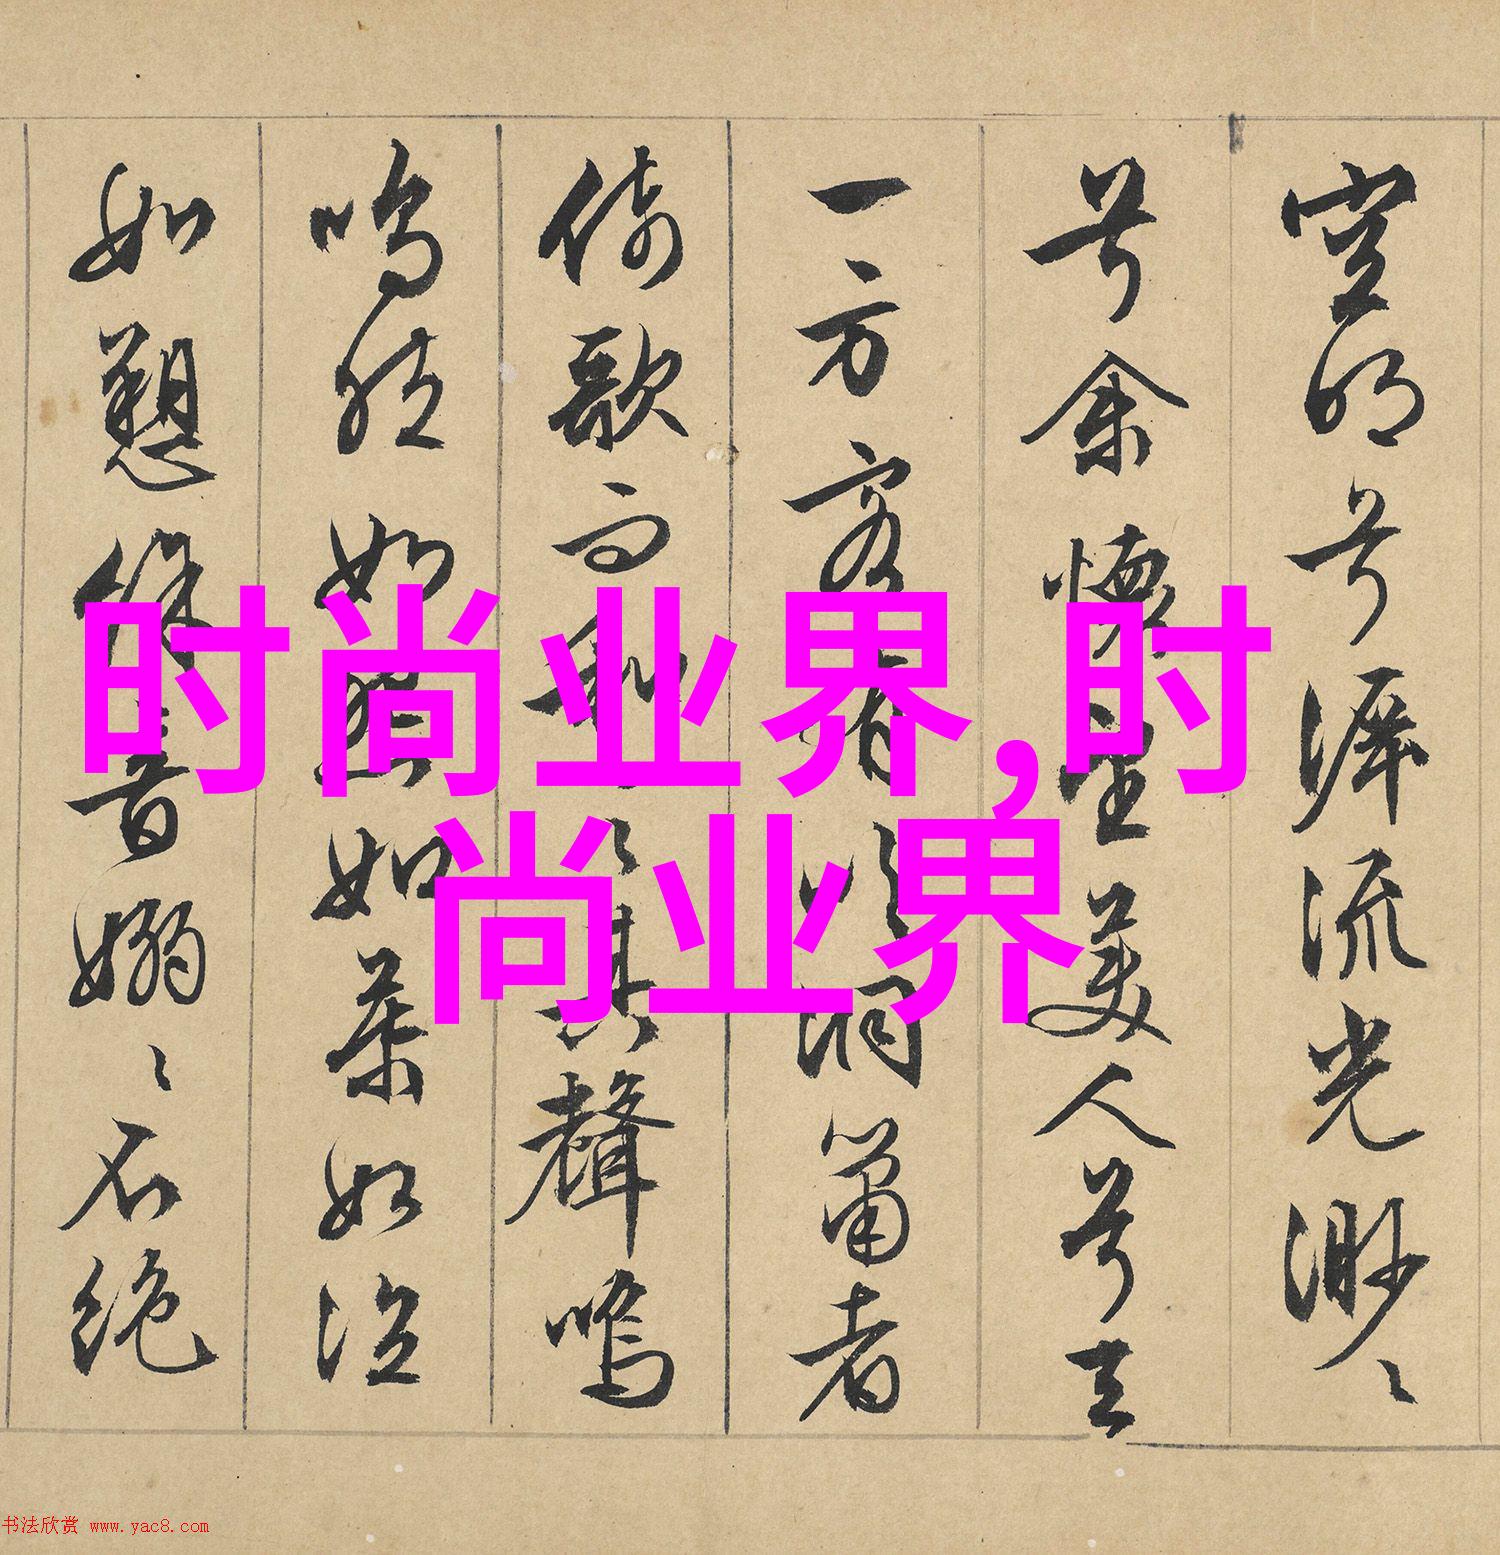 空明兮泝流光渺〻
兮余懷望美人兮天
一方客有吹洞簫者
倚歌而和之其聲嗚
嗚然如怨如慕如泣
如愬餘音嫋〻不絕
时尚业界,时
尚业界
书法欣赏 www.yac8.com